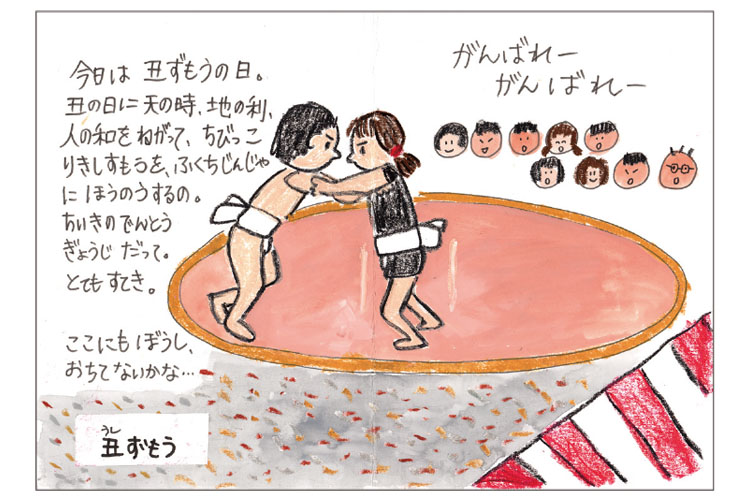 今日は 丑ずもうの日。
丑の日に 天の時、地の利、
人の和を ねがって、ちびっこ
りきしすもうを、ふくちじんじゃ
に ほうのうするの。
ちいきの でんとう
ぎょうじ だって。
とても すてき。
ここにも ぼうし、
おちてないかな…
がんばれー
がんばれー
うし
丑ずもう